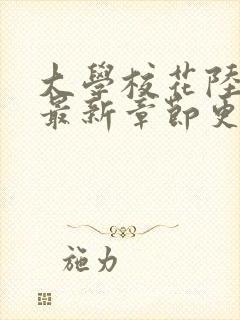 大學校花陸
最新章節更
施力